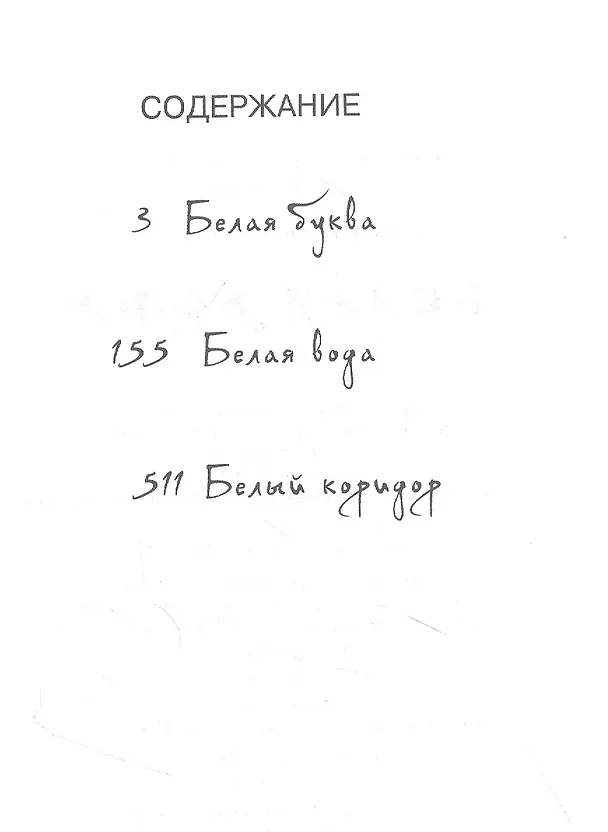 СОДЕРЖАНИЕ
3 Белая буква
155 Белая вода
511 Белый коридор